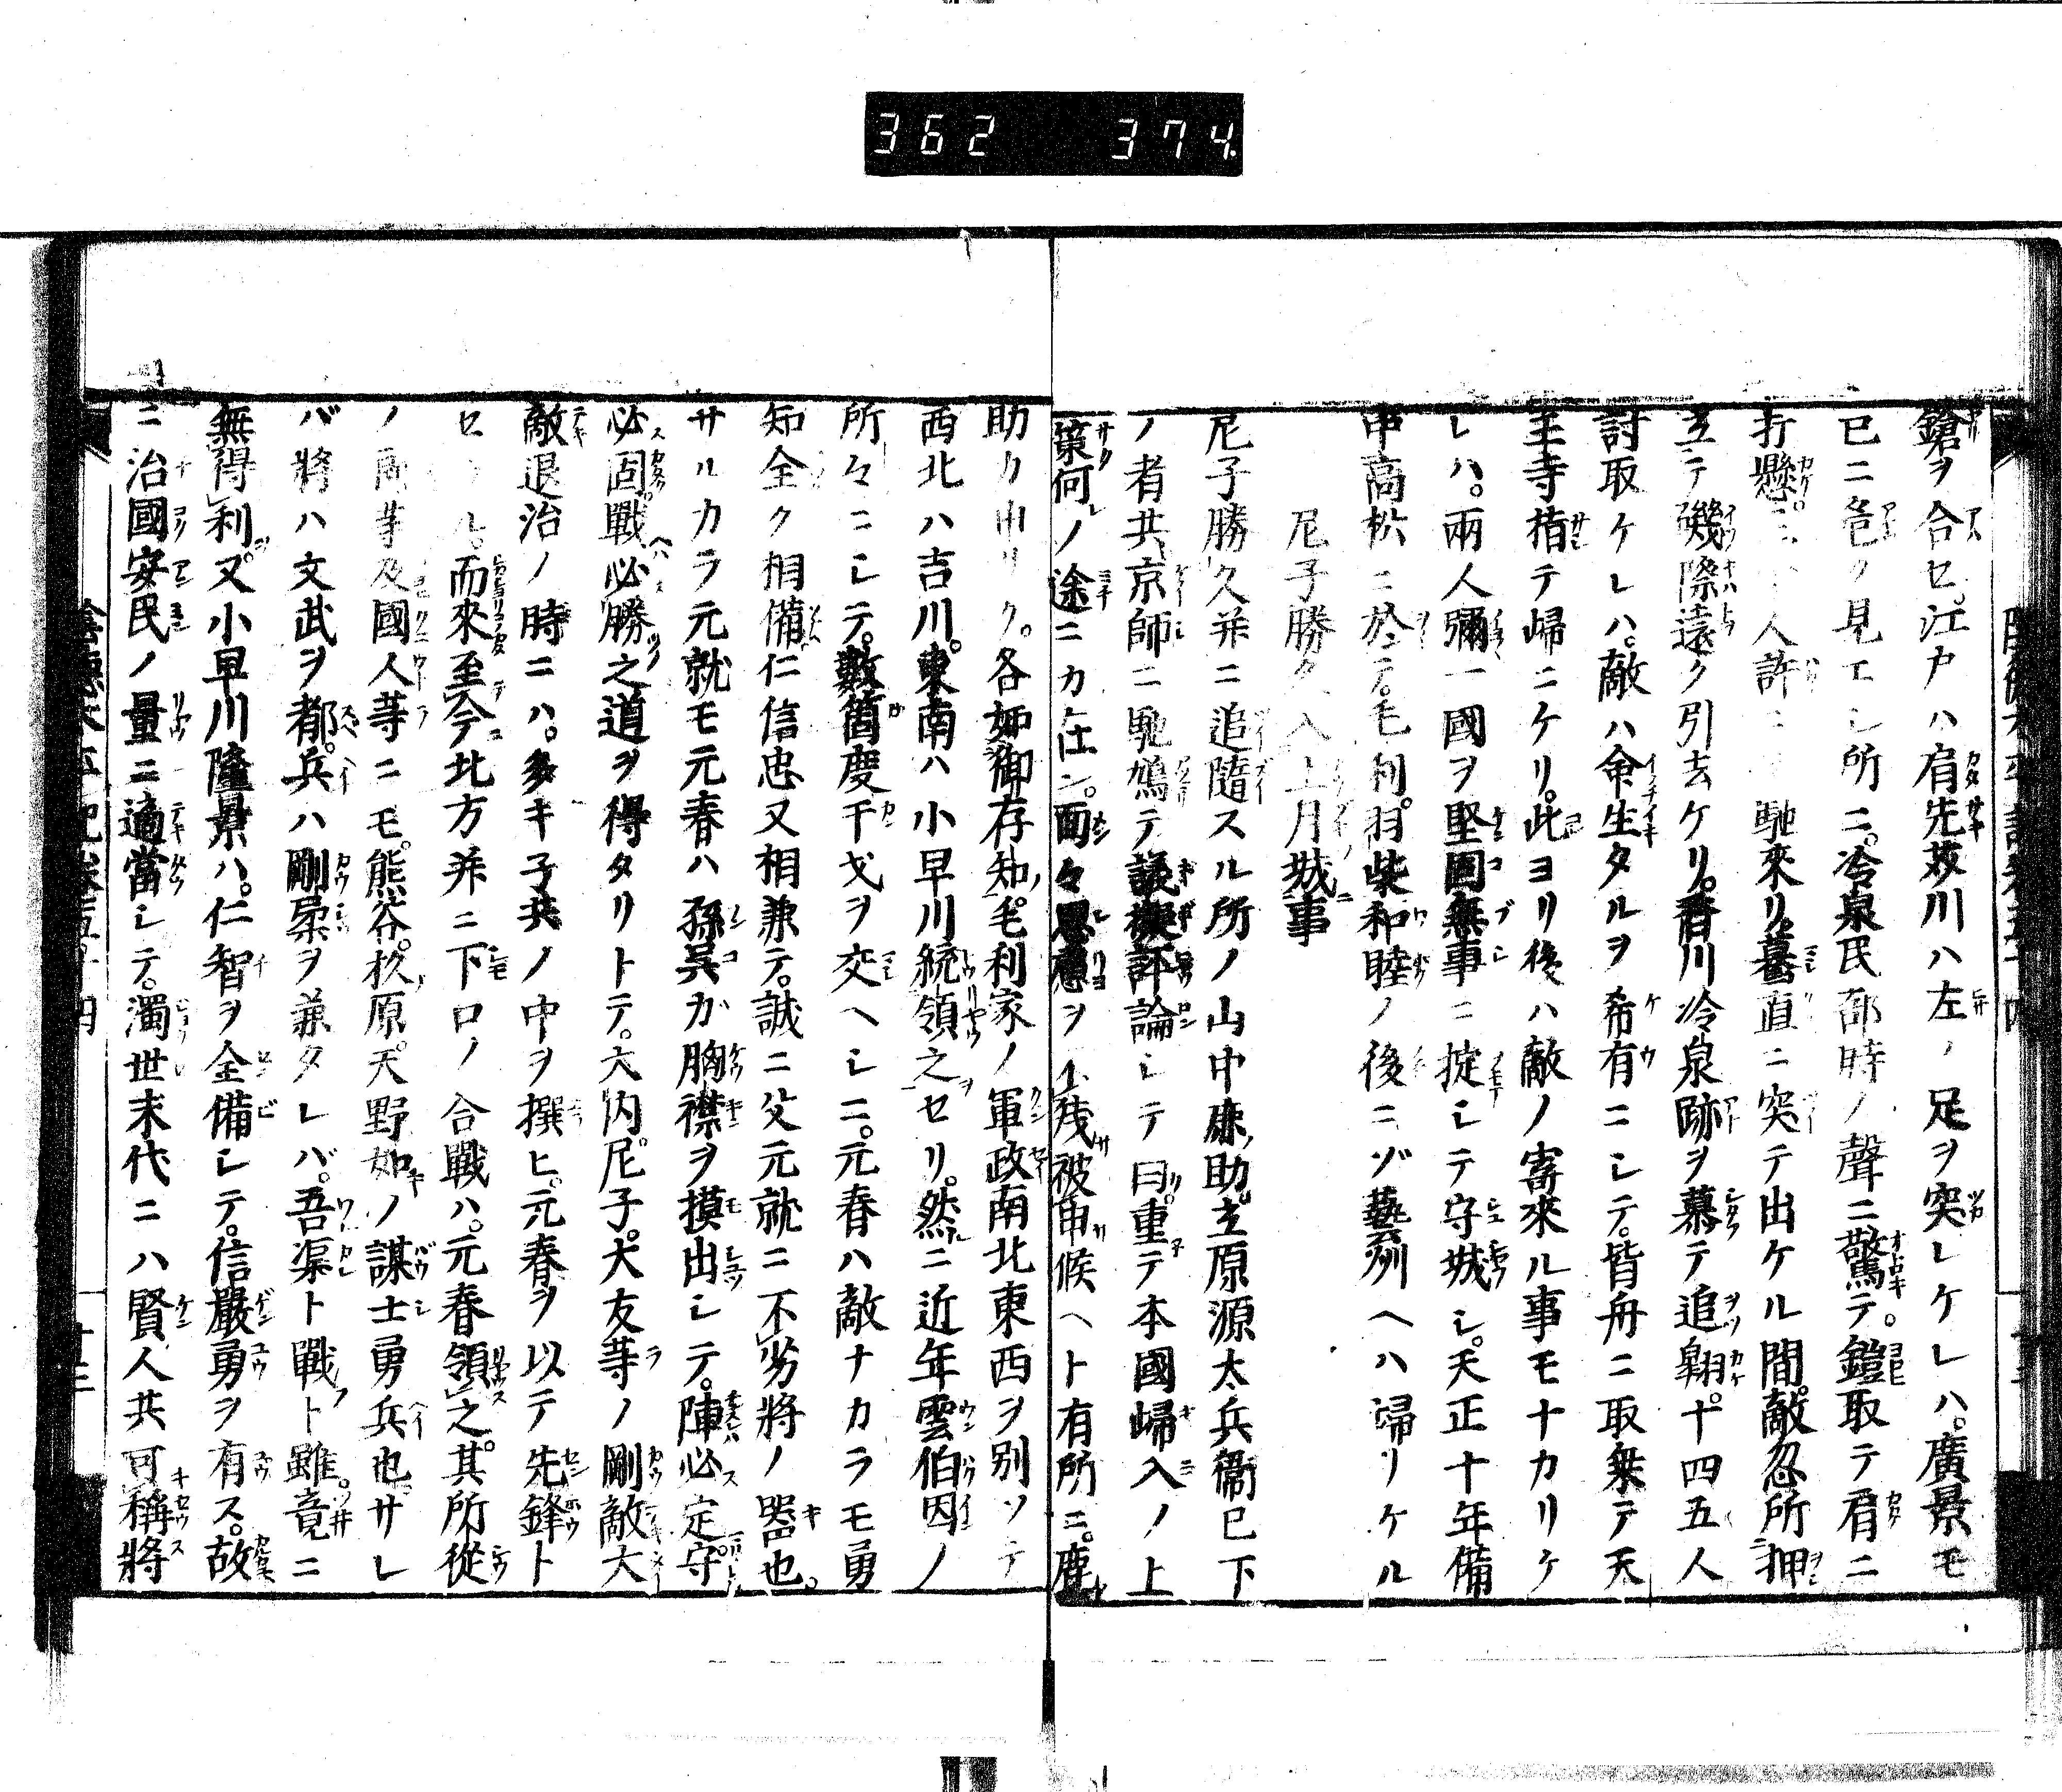 362 374
鎗ヲ合セ。江户ハ肩先苅川ハ左ノ足ヲ突レケレハ。廣景モ
已ニ危ク見エシ所ニ。冷泉民部時ノ聲ニ驚テ。鎧取テ肩ニ
打懸。人許ニ馳來リ。驀直ニ突テ出ケル間。敵忽所押
立テ磯際遠ク引去ケリ。香川冷泉跡ヲ慕テ追翔。十四五人
討取ケレハ。敵ハ命生タルヲ希有ニシテ。皆舟ニ取乗テ天
王寺指テ歸ニケリ。此ヨリ後ハ敵ノ寄來ル事モナカリケ
レハ。兩人彌一國ヲ堅固無事ニ掟シテ守城シ。天正十年備
中高松ニ於テ。毛利。羽柴和睦ノ後ニゾ藝刕ヘハ歸リケル
尼子勝久入上月城事
尼子勝久并ニ追隨スル所ノ山中鹿助。立原源太兵衞已下
ノ者共京師ニ馳鴆テ議擬評論シテ曰。重テ本國歸入ノ上
策何レノ途ニカ仕ン。面々思慮ヲ不残被申候ヘト有所ニ。鹿
助カ申リク。各如御存知。毛利家ノ軍政南北東西ヲ別ツテ
西北ハ吉川。東南ハ小早川統領之セリ。然ニ近年雲伯因ノ
所々ニシテ。數箇度干戈ヲ交ヘシニ。元春ハ敵ナカラモ勇
知全ク相備仁信忠又相兼テ。誠ニ父元就ニ不劣將ノ器也。
サルカラ元就モ元春ハ孫呉カ胸襟ヲ摸出シテ。陣必定守
必固戰必勝之道ヲ得タリトテ。大内尼子。大友等ノ剛敵大
敵退治ノ時ニハ。多キ子共ノ中ヲ撰ヒ。元春ヲ以テ先鋒ト
セラル。而來至今北方并ニ下口ノ合戰ハ。元春領之。其所從
ノ郎等及國人等ニモ。熊谷。杉原。天野如ノ謀士勇兵也。サレ
バ將ハ文武ヲ都。兵ハ剛柔ヲ兼タレバ。吾渠ト戰フト雖。竟ニ
無得利。又小早川隆景ハ。仁智ヲ全備シテ。信嚴勇ヲ有ス。故
ニ治國安民ノ量ニ適當シテ。濁世末代ニハ賢人共可稱將